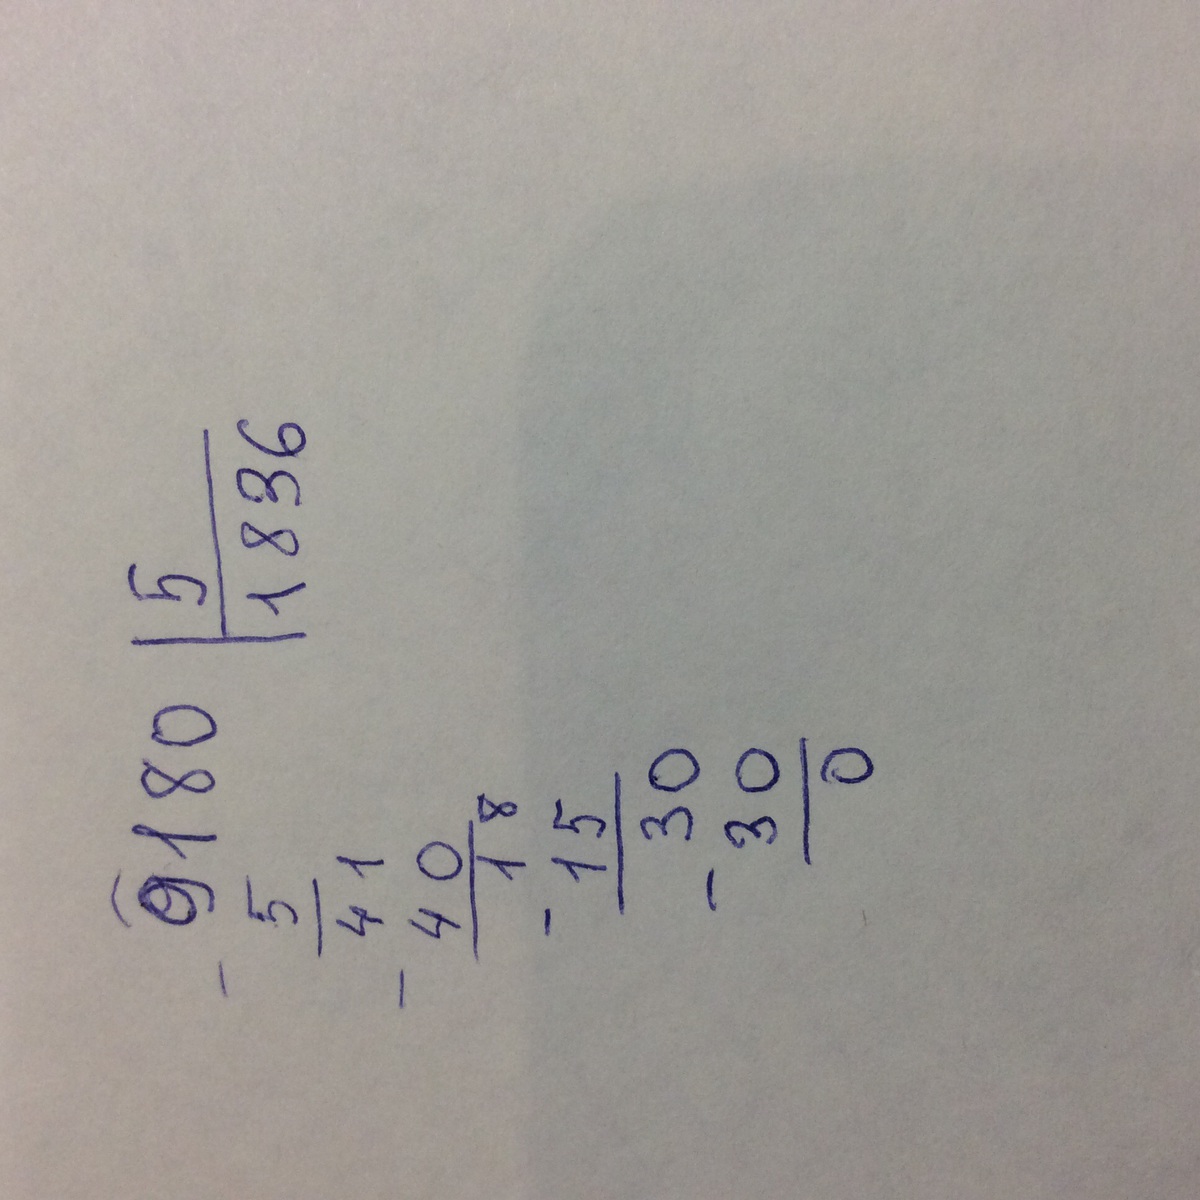 9180 5
- 5 1836
41
- 40
18
- 15
30
- 30
0